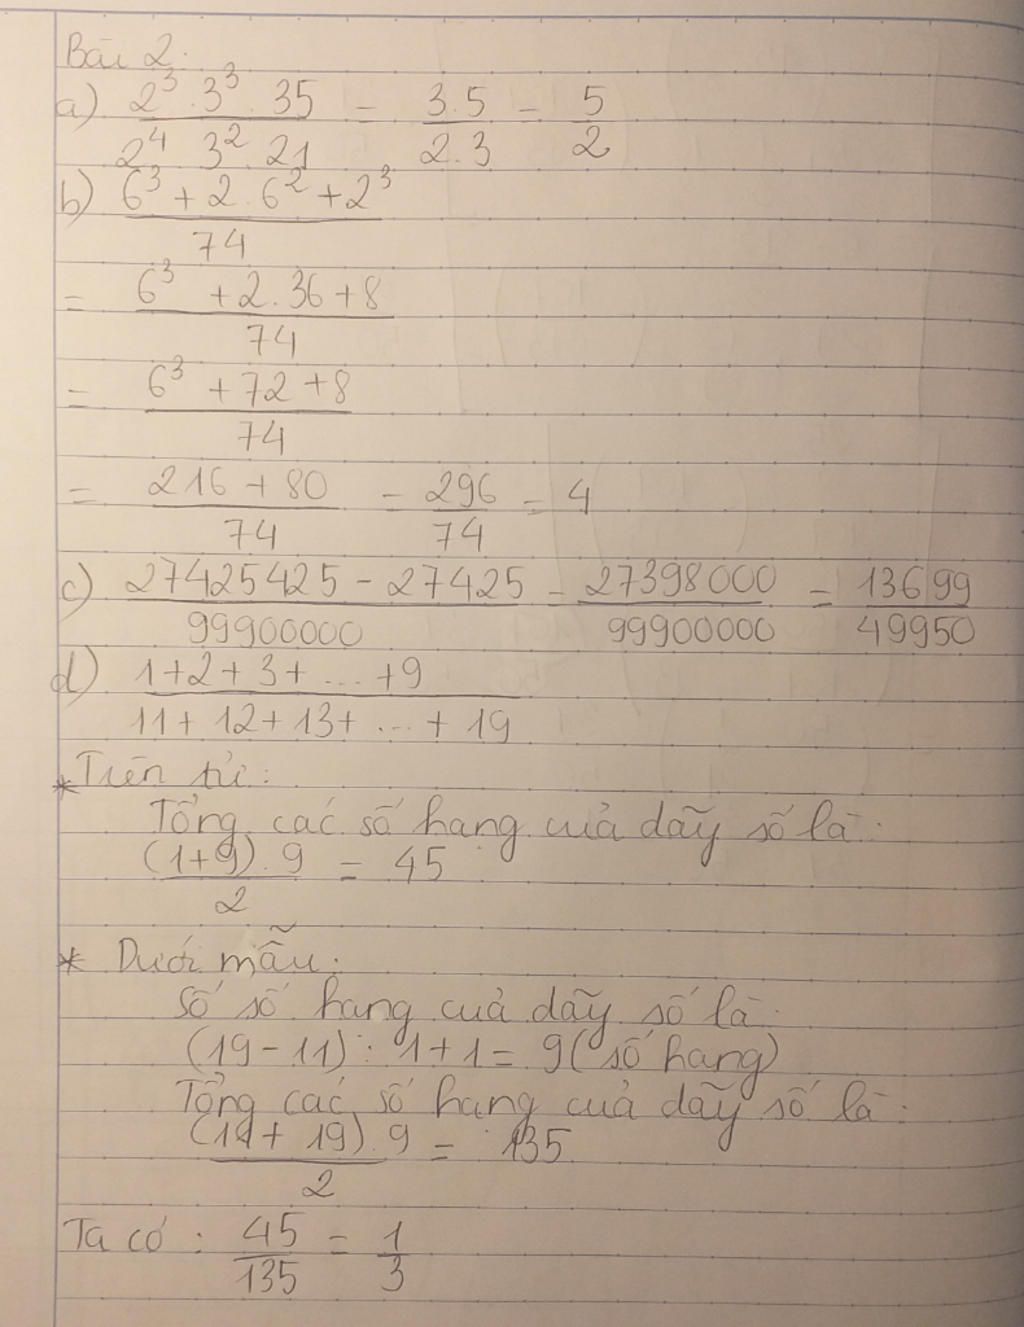 Bài 2:
a) 2³.3³.35 / 2⁴ 3².21 = 3.5 / 2.3 = 5/2
b) 6³ + 2.6² + 2³ / 74
= 6³ + 2.36 + 8 / 74
= 6³ + 72 + 8 / 74
= 216 + 80 / 74 = 296 / 74 = 4
c) 27425425 - 27425 / 99900000 = 27398000 / 99900000 = 13699 / 49950
d) 1+2+3+...+9 / 11+12+13+...+19
* Trên tử:
Tổng các số hạng của dãy số là:
(1+9).9 / 2 = 45
* Dưới mẫu:
Số số hạng của dãy số là:
(19-11):1+1=9(số hạng)
Tổng các số hạng của dãy số là:
(11+19).9 / 2 = 135
Ta có: 45/135 = 1/3